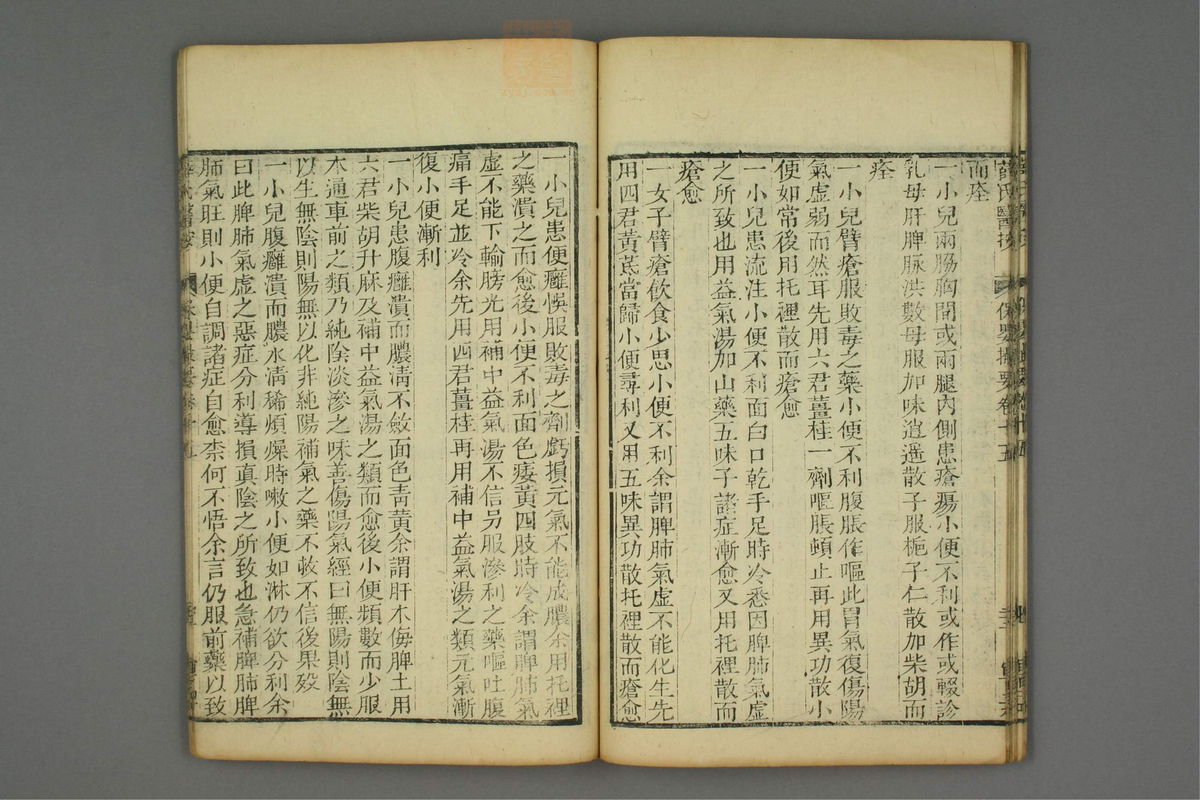 薛氏醫按 保嬰撮要卷十五
而痊
一小兒兩腸胸間或兩腿內側患瘡瘍小便不利或作或輟診
乳母肝脾脉洪數母服加味逍遥散子服梔子仁散加柴胡而
痊
一小兒臂瘡服敗毒之藥小便不利腹脹作嘔此胃氣復傷陽
氣虛弱而然耳先用六君薑桂一劑嘔脹頓止再用異功散小
便如常後用托裡散而瘡愈
一小兒患流注小便不利面白口乾手足時冷悉因脾肺氣虛
之所致也用益氣湯加山藥五味子諸症漸愈又用托裡散而
瘡愈
一女子臂瘡飲食少思小便不利余謂脾肺氣虛不能化生先
用四君黃芪當歸小便尋利又用五味異功散托裡散而瘡愈
一小兒患便癰悞服敗毒之劑虧損元氣不能成膿余用托裡
之藥潰之而愈後小便不利面色痿黃四肢時冷余謂脾肺氣
虛不能下輸膀光用補中益氣湯不信另服滲利之藥嘔吐腹
痛手足並冷余先用四君薑桂再用補中益氣湯之類元氣漸
復小便漸利
一小兒患腹癰潰而膿清不斂面色青黃余謂肝木侮脾土用
六君柴胡升麻及補中益氣湯之類而愈後小便頻數而少服
木通車前之類乃純陰淡滲之味善傷陽氣經曰無陽則陰無
以生無陰則陽無以化非純陽補氣之藥不救不信後果歿
一小兒腹癰潰而膿水清稀煩燥時嗽小便如淋仍欲分利余
曰此脾肺氣虛之惡症分利導損真陰之所致也急補脾肺脾
肺氣旺則小便自調諸症自愈柰何不悟余言仍服前藥以致